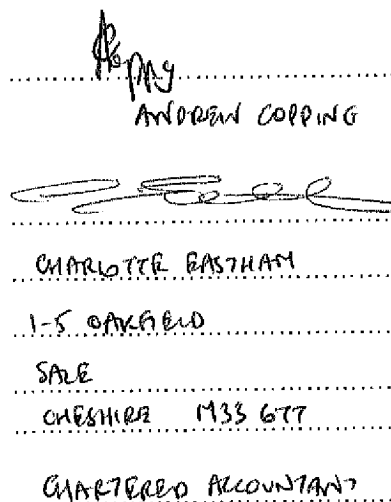 ANDREW COPPING
CHARLOTTE EASTHAM
1-5 OAKFIELD
SALE
CHESHIRE M33 6TT
CHARTERED ACCOUNTANT